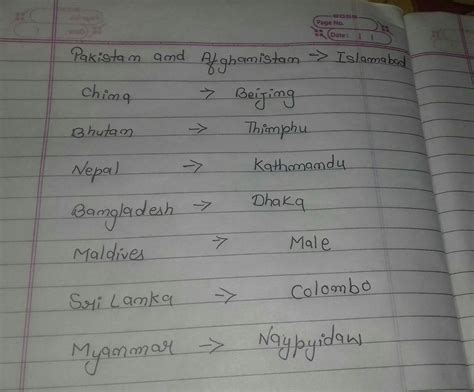 Page No.
Date:
Pakistan and Afghanistan → Islamabad
China → Beijing
Bhutan → Thimphu
Nepal → Kathmandu
Bangladesh → Dhaka
Maldives → Male
Sri Lanka → Colombo
Myanmar → Naypyidaw